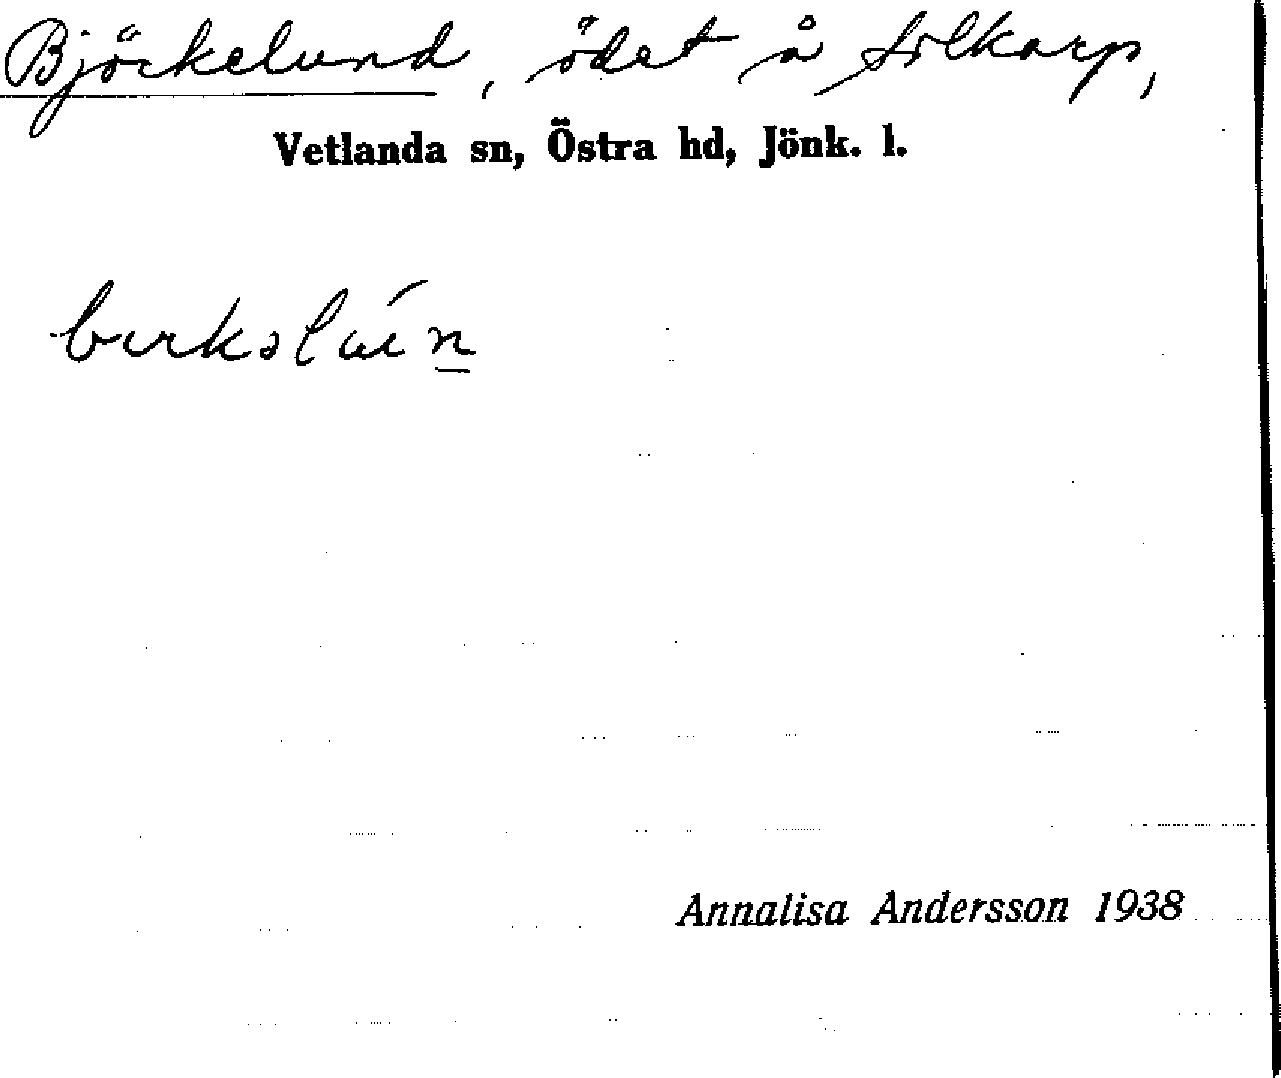 Björkelund, ödet å
Vetlanda sn, Östra hd, Jönk. l.
Annalisa Andersson 1938